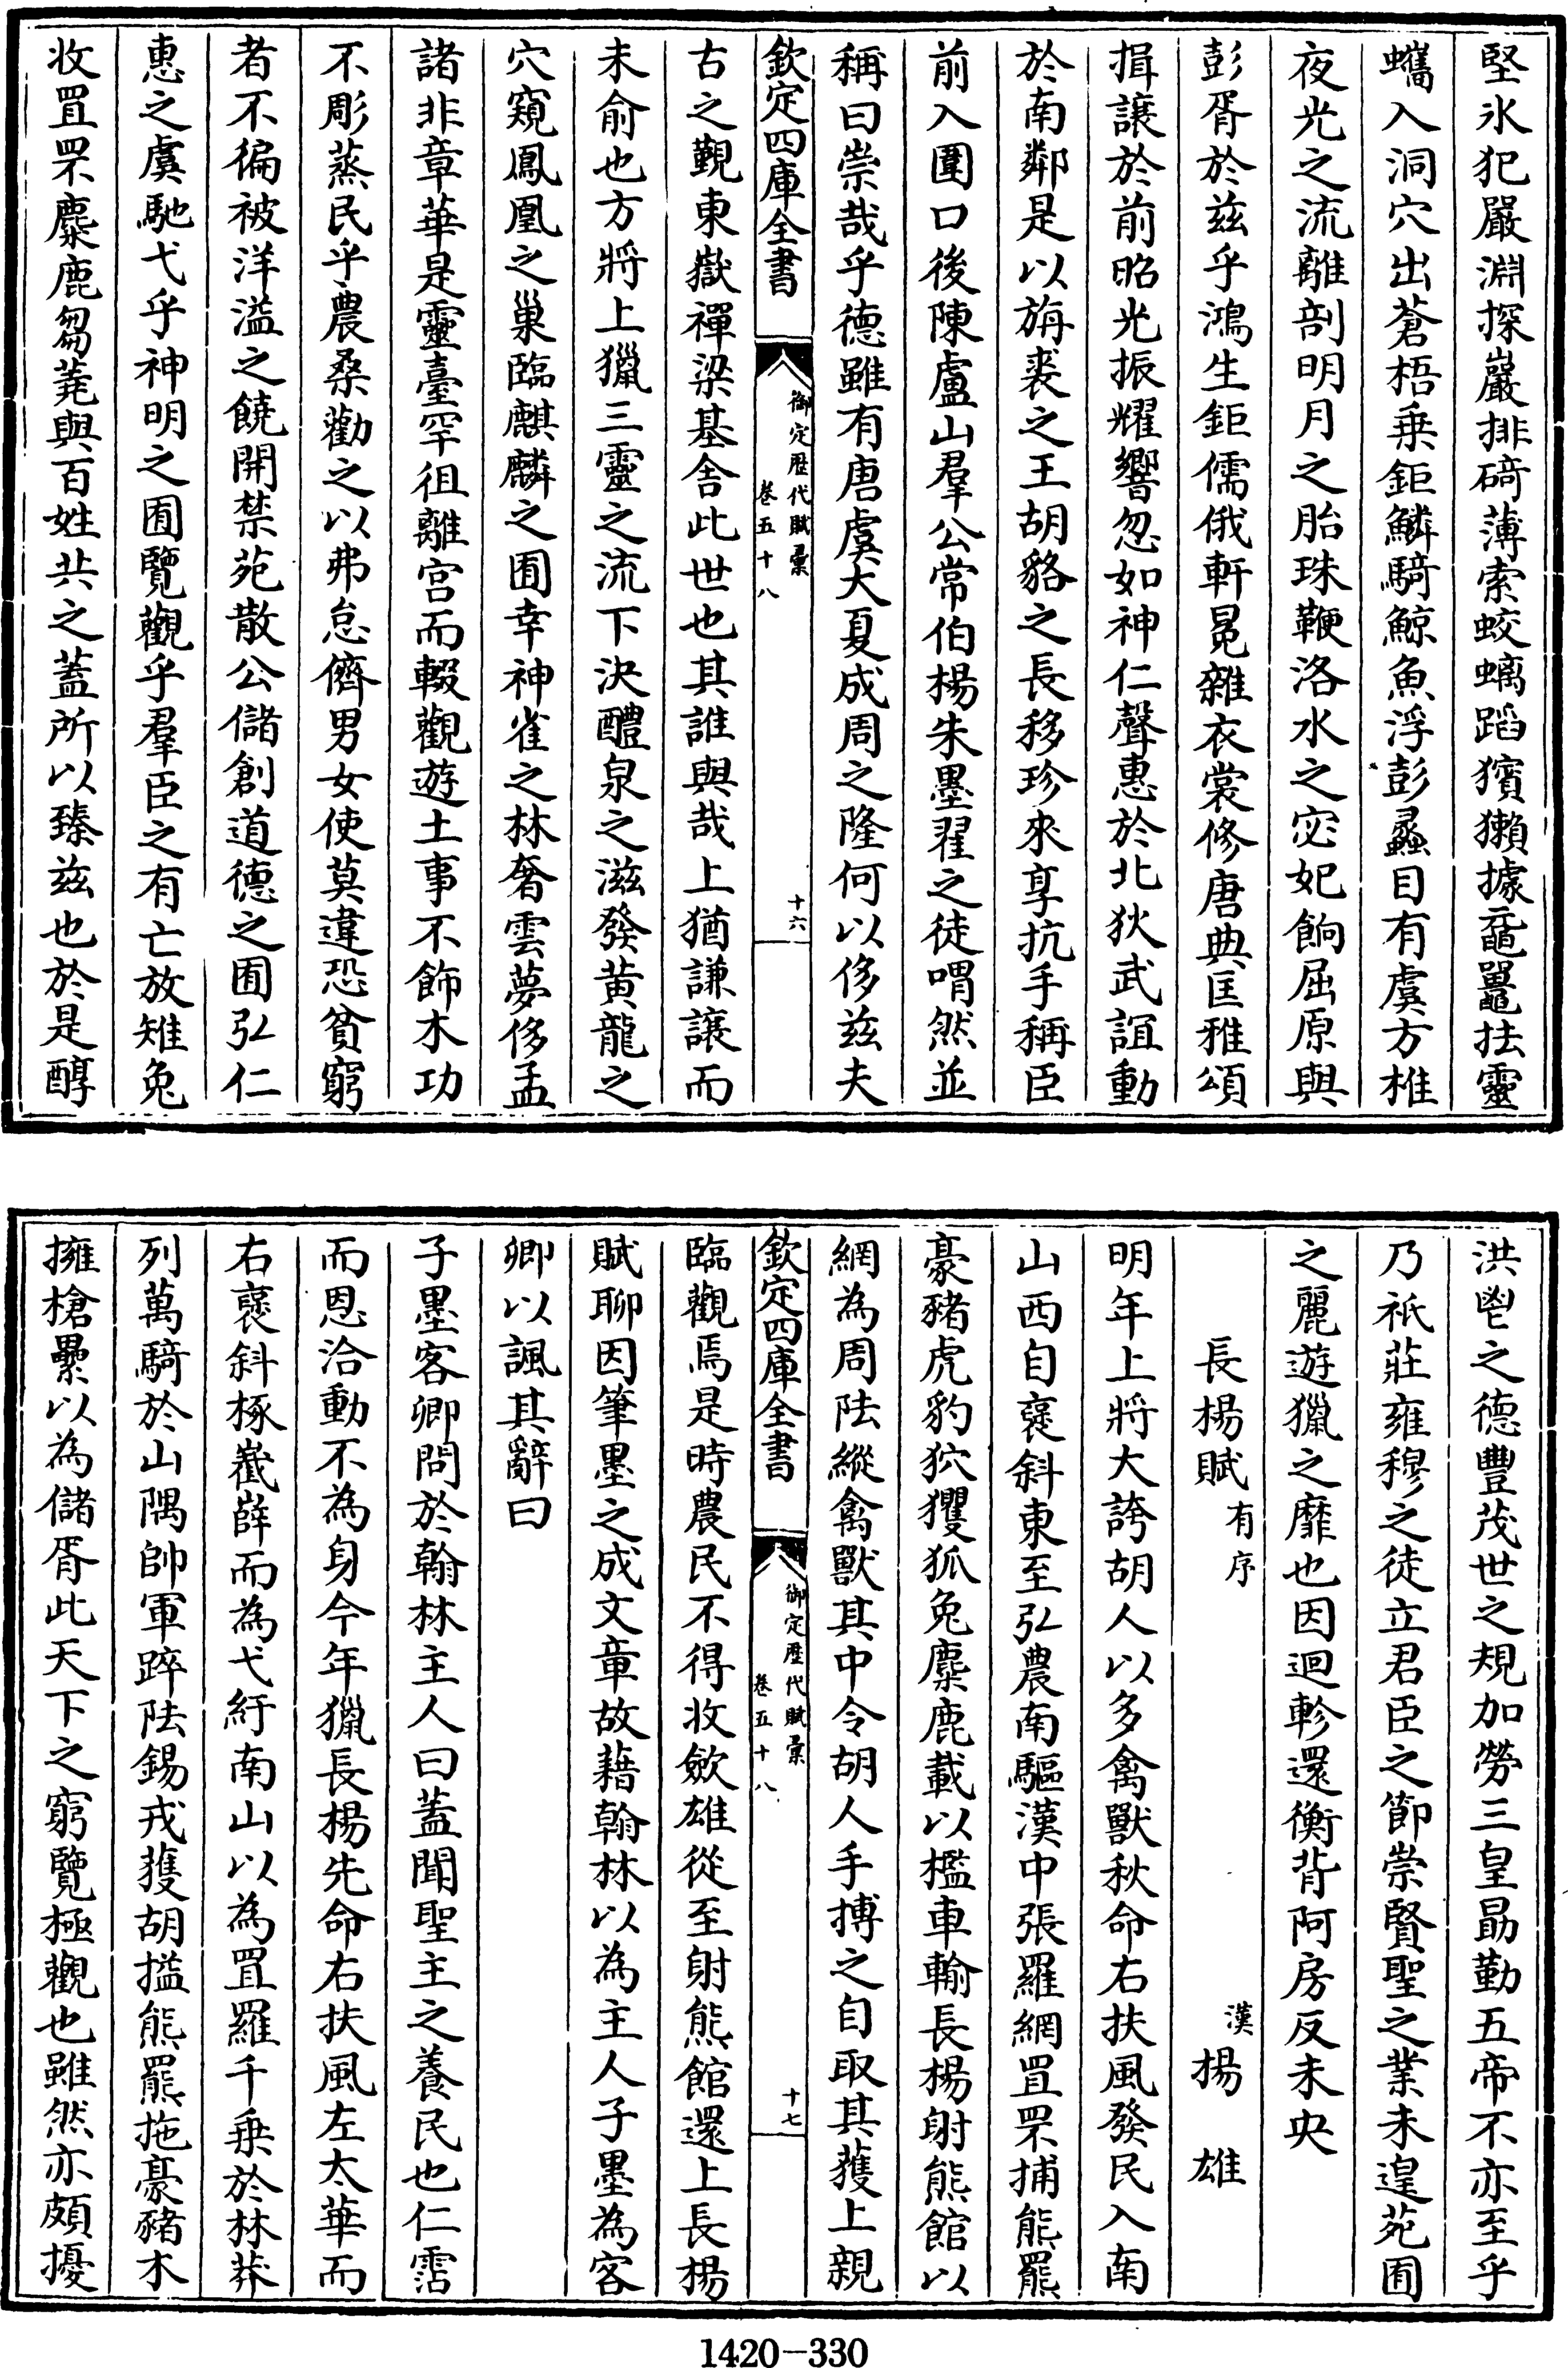 堅氷犯嚴淵探巖排碕薄索蛟螭蹈獱獺據黿鼉抾靈
蠵入洞穴出蒼梧乗鉅鱗騎鯨魚浮彭蠡目有虞方椎
夜光之流離剖明月之胎珠鞭洛水之宓妃餉屈原與
彭胥於兹乎鴻生鉅儒俄軒冕雜衣裳修唐典匡雅頌
揖讓於前昭光振耀響忽如神仁聲惠於北狄武誼動
於南鄰是以旃裘之王胡貉之長移珍來享抗手稱臣
前入圍口後陳盧山羣公常伯楊朱墨翟之徒喟然並
稱曰崇哉乎德雖有唐虞大夏成周之隆何以侈兹夫
欽定四庫全書
御定歴代賦彙
卷五十八
十六
古之觀東嶽禪梁基舍此世也其誰與哉上猶謙讓而
未俞也方將上獵三靈之流下決醴泉之滋發黄龍之
穴窺鳳凰之巢臨麒麟之囿幸神雀之林奢雲夢侈孟
諸非章華是靈臺罕徂離宫而輟觀遊土事不飾木功
不彫蒸民乎農桑勸之以弗怠儕男女使莫違恐貧窮
者不徧被洋溢之饒開禁苑散公儲創道德之囿弘仁
惠之虞馳弋乎神明之囿覽觀乎羣臣之有亡放雉兔
收罝罘麋鹿芻蕘與百姓共之蓋所以臻兹也於是醇
洪鬯之德豐茂世之規加勞三皇勗勤五帝不亦至乎
乃祗莊雍穆之徒立君臣之節崇賢聖之業未遑苑囿
之麗遊獵之靡也因迴軫還衡背阿房反未央
長楊賦有序
漢揚雄
明年上將大誇胡人以多禽獸秋命右扶風發民入南
山西自褒斜東至弘農南驅漢中張羅網罝罘捕熊羆
豪豬虎豹狖玃狐兔麋鹿載以檻車輸長楊射熊館以
網為周阹縱禽獸其中令胡人手搏之自取其獲上親
欽定四庫全書
御定歴代賦彙
卷五十八
十七
臨觀焉是時農民不得收斂雄從至射熊館還上長楊
賦聊因筆墨之成文章故藉翰林以為主人子墨為客
卿以諷其辭曰
子墨客卿問於翰林主人曰蓋聞聖主之養民也仁霑
而恩洽動不為身今年獵長楊先命右扶風左太華而
右褒斜椓嶻嶭而為弋紆南山以為罝羅千乗於林莽
列萬騎於山隅帥軍踤阹錫戎獲胡搤熊羆拖豪豬木
擁槍纍以為儲胥此天下之窮覽極觀也雖然亦頗擾
1420-330